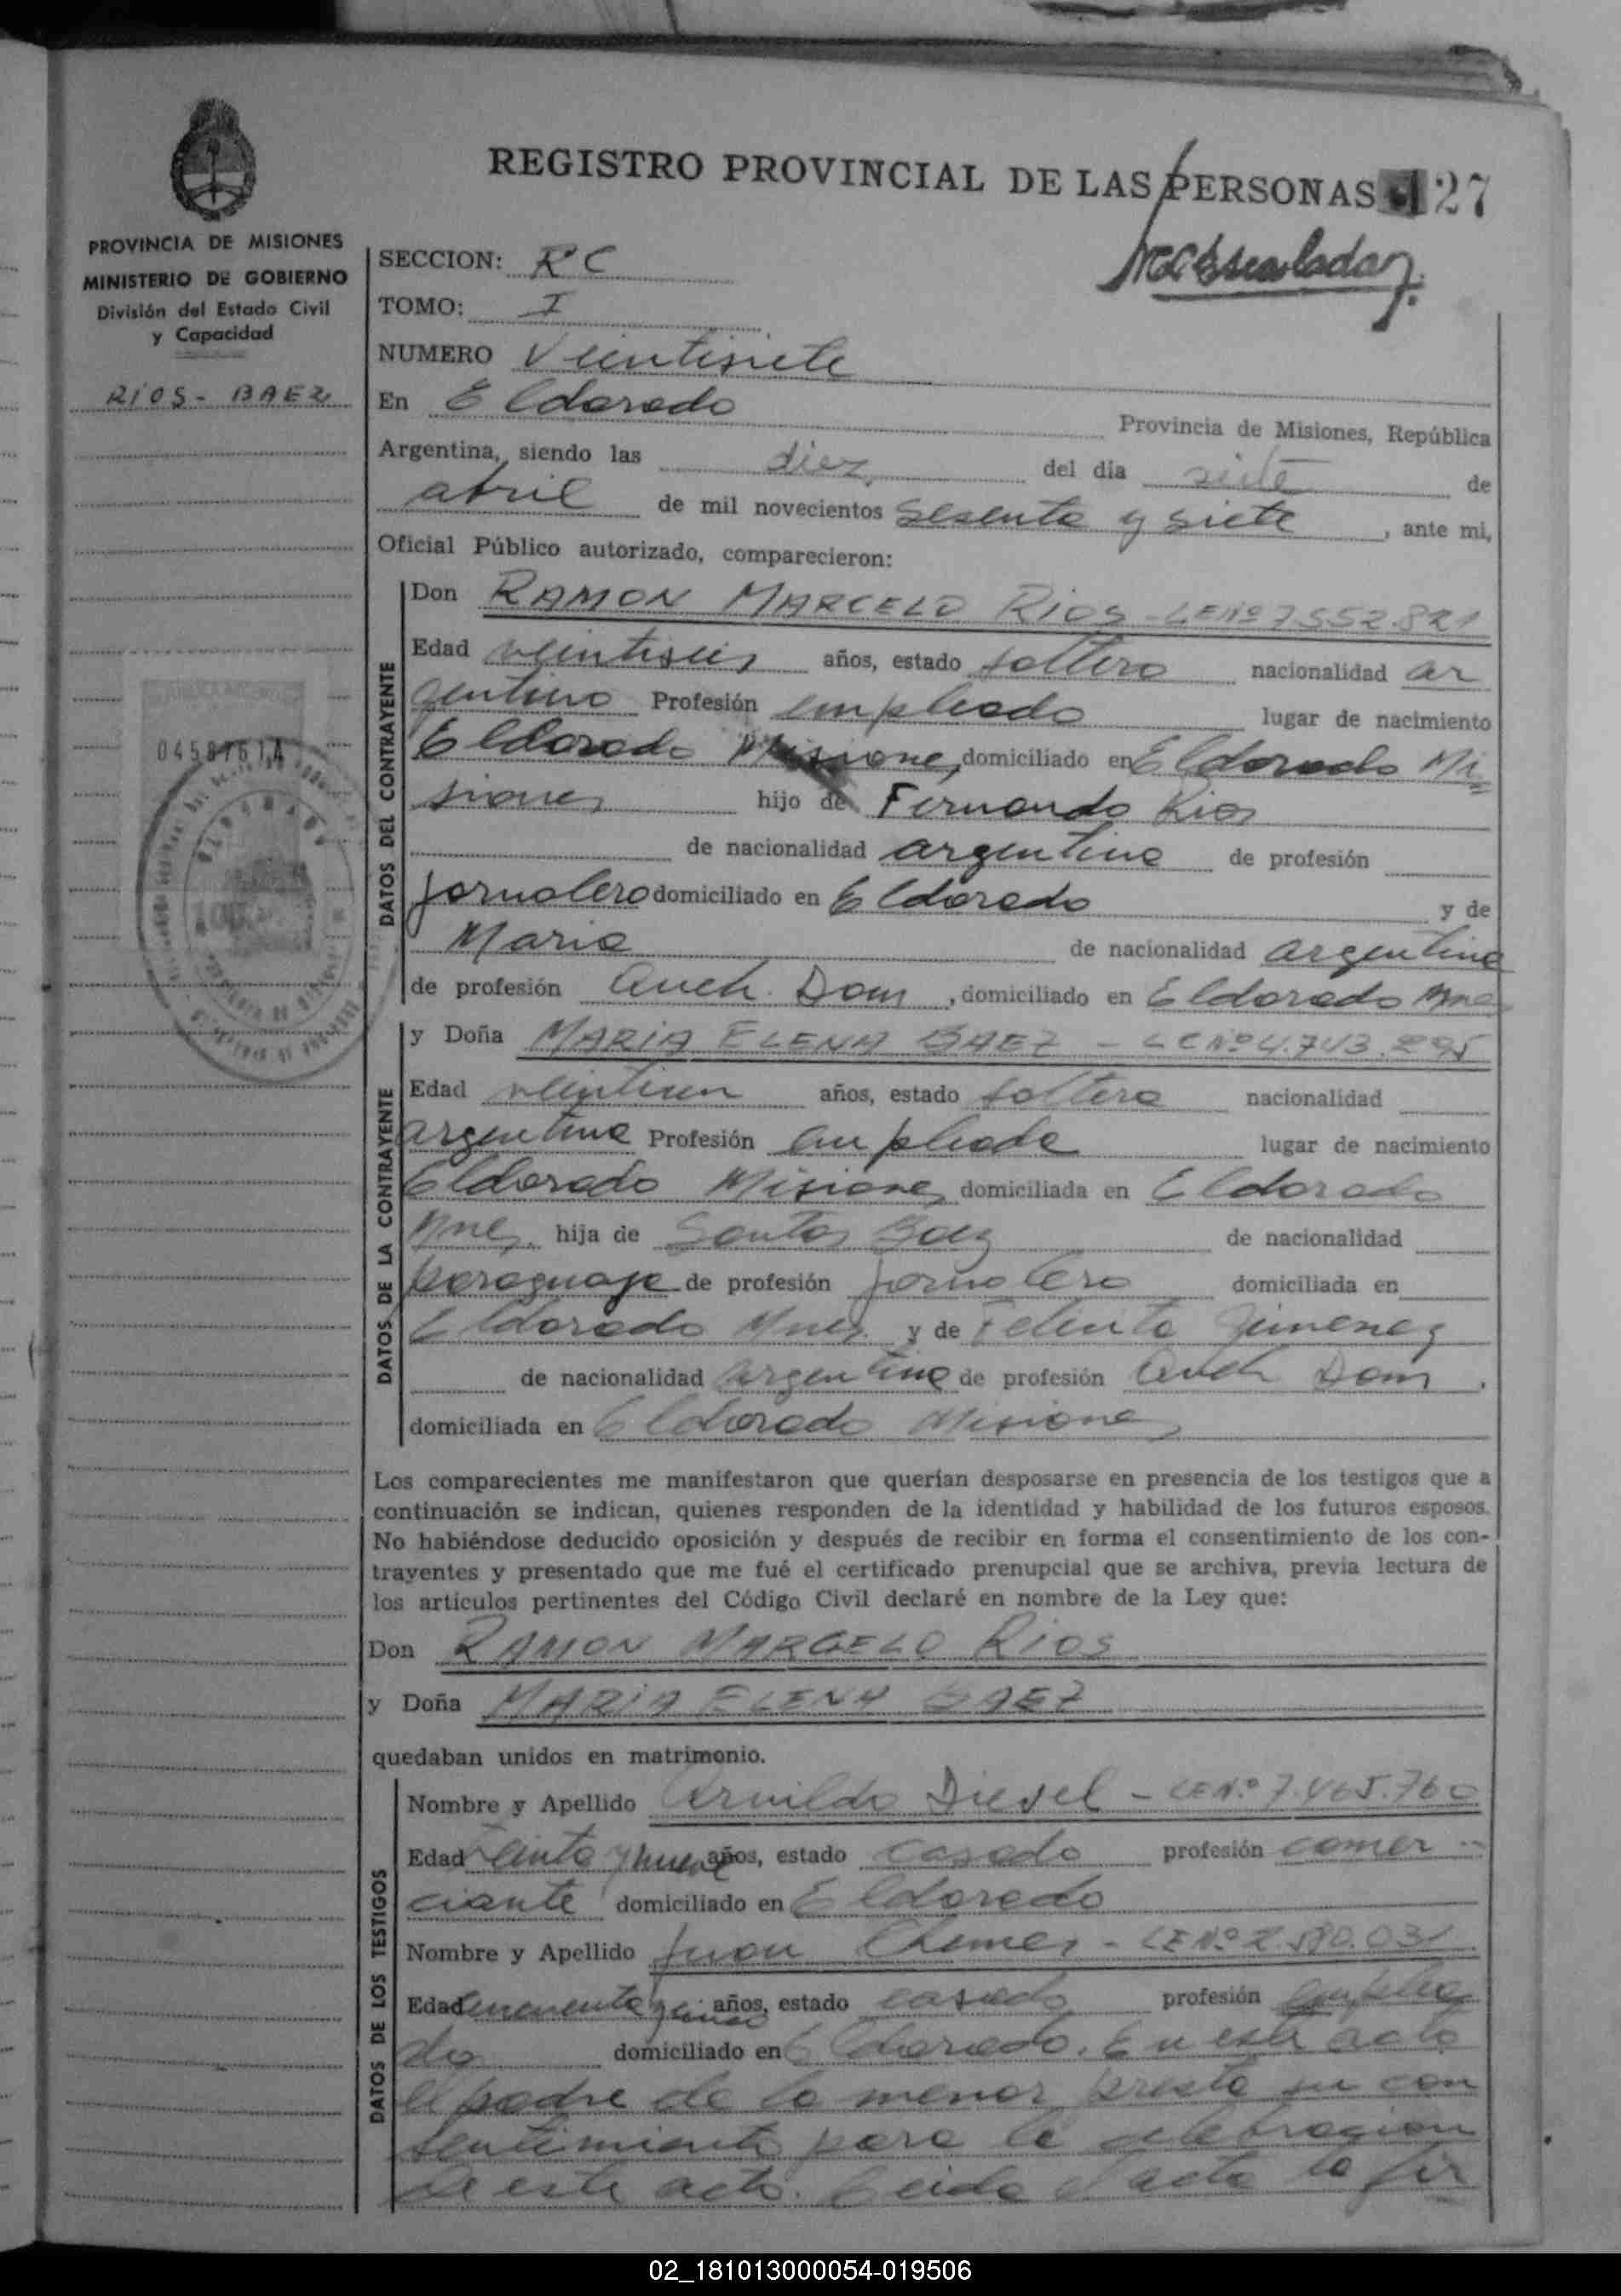 REGISTRO PROVINCIAL DE LAS PERSONAS 127
PROVINCIA DE MISIONES
MINISTERIO DE GOBIERNO
División del Estado Civil
y Capacidad
RIOS - BAEZ
04587614
SECCION: R C
TOMO: I
NUMERO Veintisiete
En Eldorado Provincia de Misiones, República
Argentina, siendo las diez del día siete de
abril de mil novecientos sesenta y siete, ante mi,
Oficial Público autorizado, comparecieron:
DATOS DEL CONTRAYENTE
Don RAMON MARCELO RIOS - LE Nº 7.552.821
Edad veintiseis años, estado soltero nacionalidad ar
gentino Profesión empleado lugar de nacimiento
Eldorado Misiones, domiciliado en Eldorado Mi
siones hijo de Fernando Rios
de nacionalidad argentina de profesión
jornalero domiciliado en Eldorado y de
Maria de nacionalidad argentina
de profesión Queh. Dom, domiciliado en Eldorado Mnes
DATOS DE LA CONTRAYENTE
y Doña MARIA ELENA BAEZ - LC Nº 4.743.295
Edad veintiun años, estado soltera nacionalidad
argentina Profesión empleada lugar de nacimiento
Eldorado Misiones domiciliada en Eldorado
Mnes. hija de Santos Baez de nacionalidad
paraguaya de profesión jornalero domiciliada en
Eldorado Mnes. y de Jimenez
de nacionalidad argentina de profesión Queh Dom.
domiciliada en Eldorado Misiones
Los comparecientes me manifestaron que querían desposarse en presencia de los testigos que a
continuación se indican, quienes responden de la identidad y habilidad de los futuros esposos.
No habiéndose deducido oposición y después de recibir en forma el consentimiento de los con-
trayentes y presentado que me fué el certificado prenupcial que se archiva, previa lectura de
los artículos pertinentes del Código Civil declaré en nombre de la Ley que:
Don RAMON MARCELO RIOS
y Doña MARIA ELENA BAEZ
quedaban unidos en matrimonio.
DATOS DE LOS TESTIGOS
Nombre y Apellido Arnildo Diesel - LE Nº 7.465.760
Edad treinta y nueve años, estado casado profesión comer
ciante domiciliado en Eldorado
Nombre y Apellido Juan - LE Nº 2.580.031
Edad cincuenta y cinco años, estado casado profesión emplea
do domiciliado en Eldorado. En este acto
el padre de la menor presta su con
sentimiento para la celebracion
de este acto. Leida el acta la fir
02_181013000054-019506